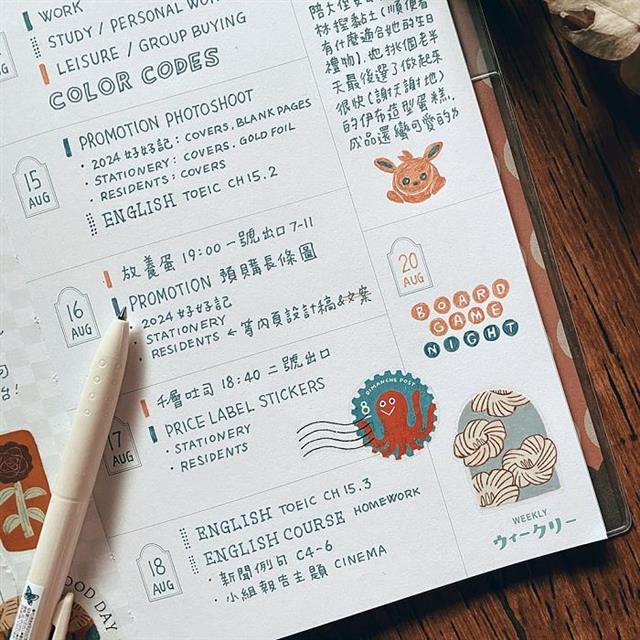 WORK
STUDY / PERSONAL WOR
LEISURE / GROUP BUYING
COLOR CODES
15 AUG
PROMOTION PHOTOSHOOT
• 2024 好好記: COVERS, BLANK PAGES
• STATIONERY: COVERS, GOLD FOIL
• RESIDENTS: COVERS
ENGLISH TOEIC CH 15.2
16 AUG
放養蛋 19:00 一號出口 7-11
PROMOTION 預購長條圖
2024 好好記
STATIONERY
RESIDENTS ← 等內頁設計稿&文案
17 AUG
千層吐司 18:40 二號出口
PRICE LABEL STICKERS
• STATIONERY
• RESIDENTS
18 AUG
ENGLISH TOEIC CH 15.3
ENGLISH COURSE HOMEWORK
• 新聞例句 C4-6
• 小組報告主題 CINEMA
林捏黏土(順便看
有什麼適合她的生日
禮物),也挑個老半
天最後選了做起來
很快(謝天謝地)
的伊布造型蛋糕,
成品還蠻可愛的
20 AUG
BOARD
GAME
NIGHT
DIMANCHE POST
8
WEEKLY
ウィークリー
台!
OOD DAY